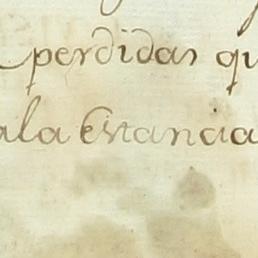 perdidas qu
ala Estancia